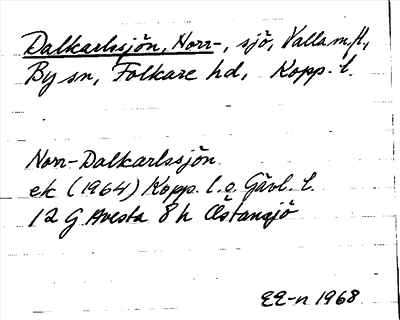 Dalkarlssjön, Norr-, sjö, Valla m.fl.,
By sn, Folkare hd, Kopp. l.
Norr-Dalkarlssjön
ek (1964) Kopp. l. o. Gävl. l.
12 G Avesta 8 h Östansjö
EE-n 1968